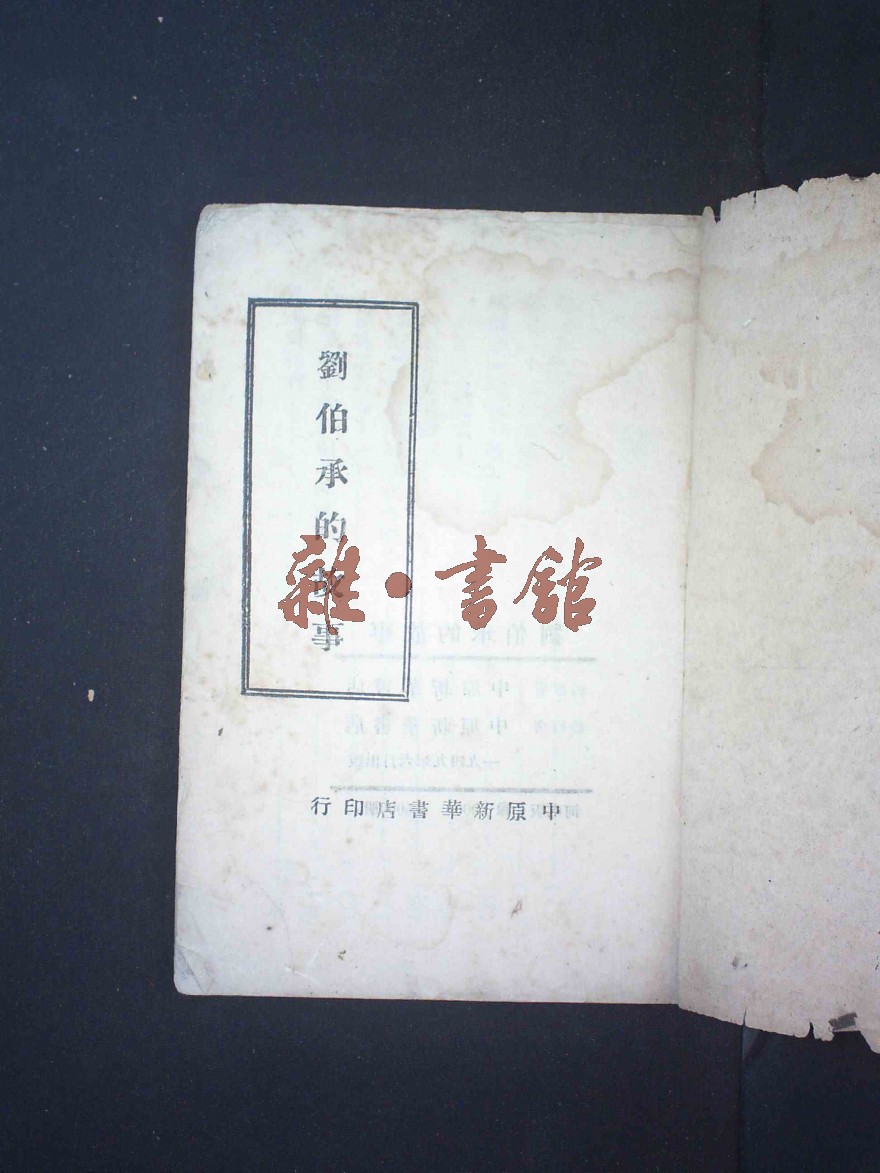 劉伯承的故事
雜·書館
中原新華書店印行